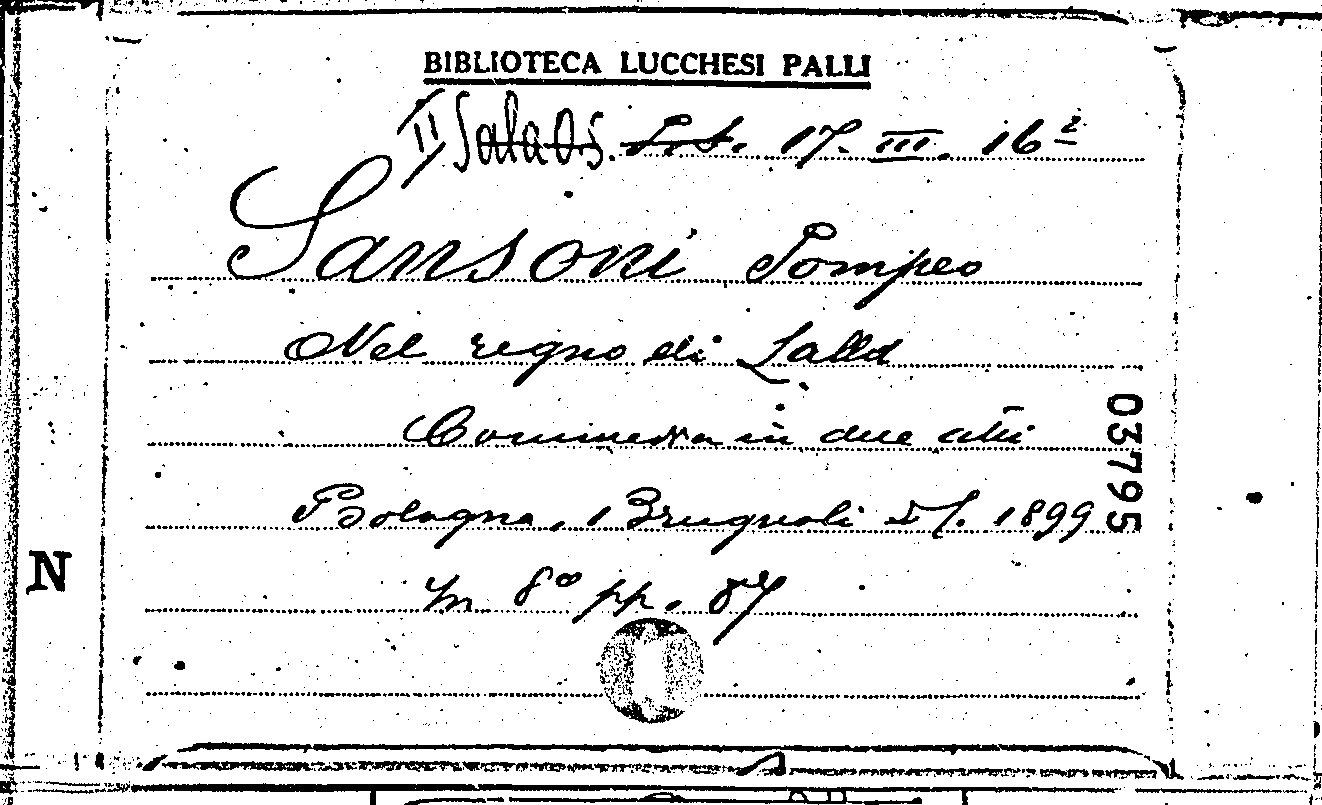 BIBLIOTECA LUCCHESI PALLI
II Sala 17. III. 16²
Sansoni Pompeo
Nel regno di
Commedia in due atti
Bologna, Brugnoli 1899
In 8° pp. 87
03795
N